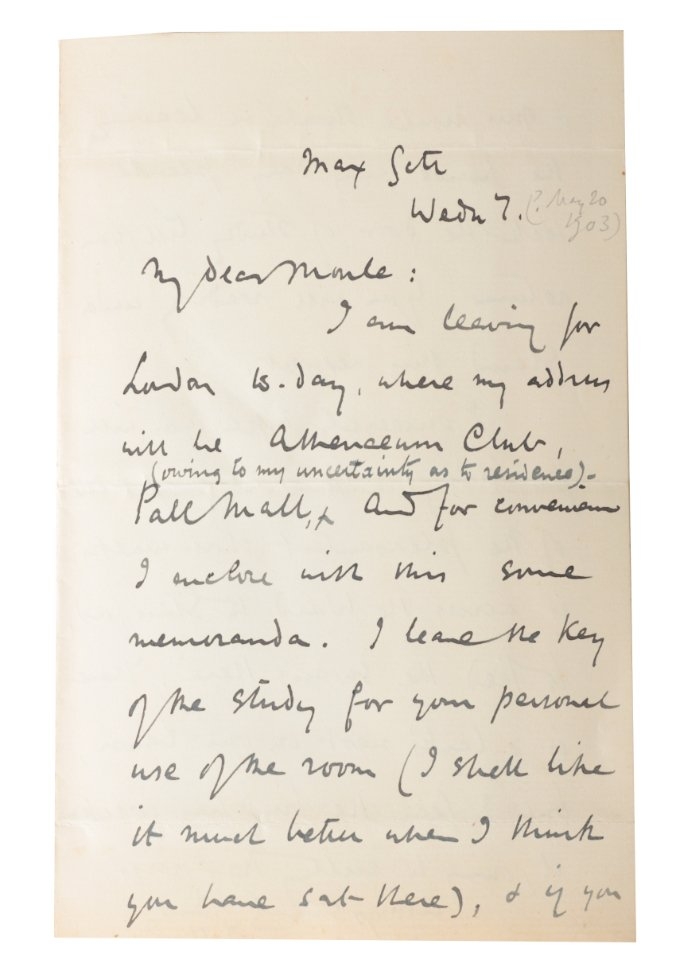 Max Gate
Wedn 7. (?. May 20
1903)
My dear Moule :
I am leaving for
London to-day, where my address
will be Athenaeum Club,
(owing to my uncertainty as to residence).
Pall Mall, & And for convenience
I enclose with this some
memoranda. I leave the key
of the study for your personal
use of the room (I shall like
it much better when I think
you have sat there), & if you